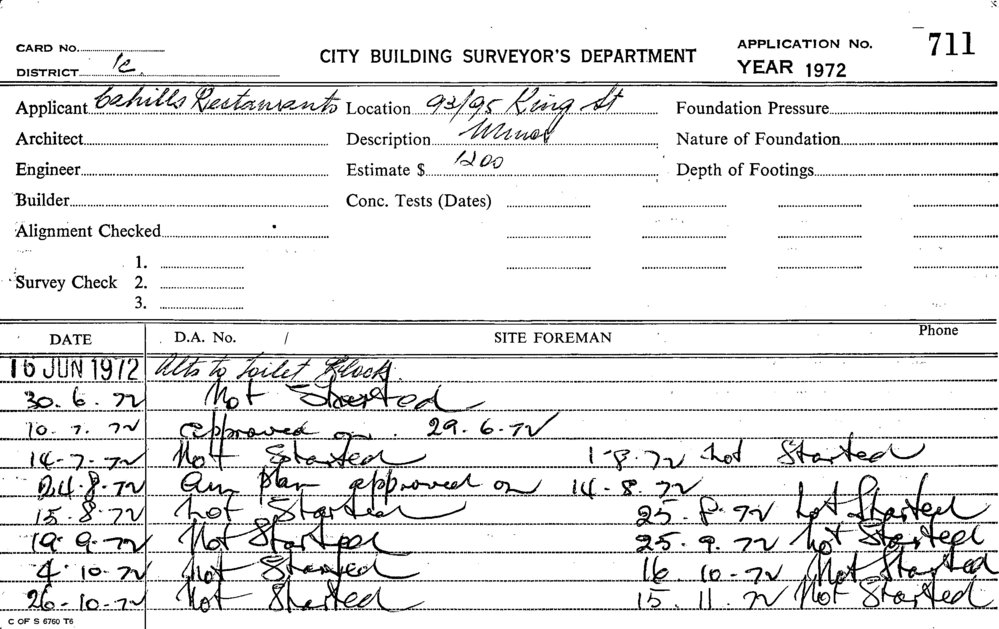 CARD No. CITY BUILDING SURVEYOR'S DEPARTMENT APPLICATION No. 711
DISTRICT 1c. YEAR 1972
Applicant Cahills Restaurants Location 93/95 King St Foundation Pressure
Architect Description Minor Nature of Foundation
Engineer Estimate $ 1200 Depth of Footings
Builder Conc. Tests (Dates)
Alignment Checked
1.
Survey Check 2.
3.
DATE D.A. No. / SITE FOREMAN Phone
16 JUN 1972 Alts to Toilet Block.
30. 6. 72 Not Started
10. 7. 72 approved on. 29. 6. 72
14-7-72 Not Started 1-8.72 Not Started
24.8.72 Am plan approved on 14-8.72
15-8.72 Not Started 25.8.72 Not Started
19.9.72 Not Started 25.9.72 Not Started
4.10-72 Not Started 16.10-72 Not Started
26-10-72 Not Started 15.11.72 Not Started
C OF S 6760 T6